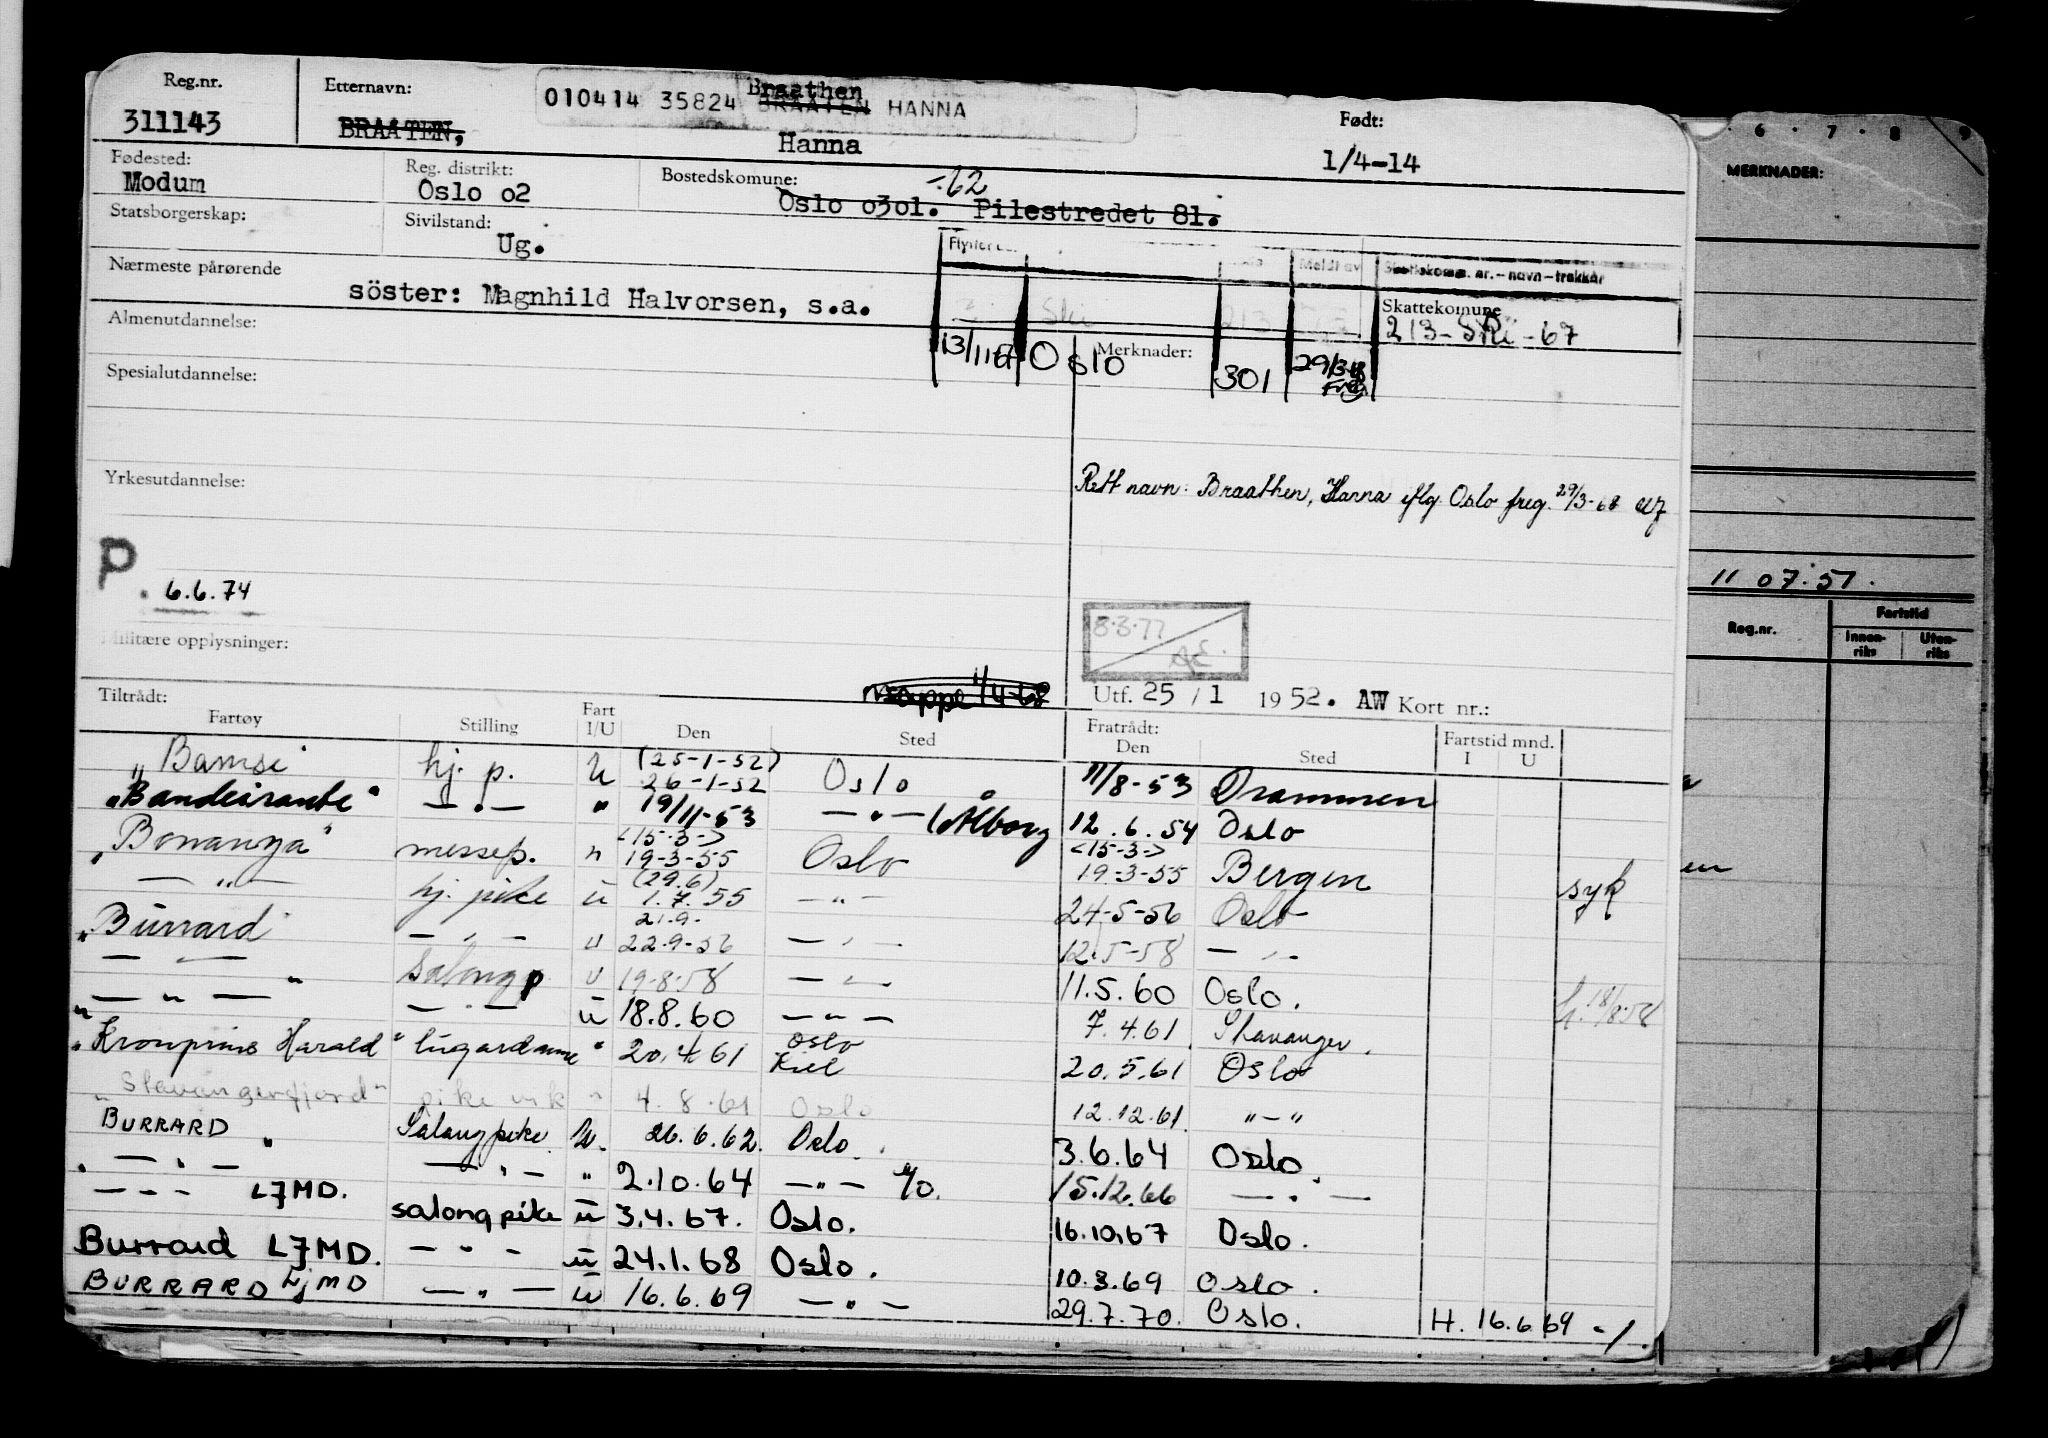 Reg.nr. Etternavn: 010414 35824 Braathen BRAATEN HANNA Født:
311143 BRAATEN, Hanna 1/4-14
Fødested: Reg. distrikt: Bostedskomune: -62
Modum Oslo o2 Oslo o3o1. Pilestredet 81.
Statsborgerskap: Sivilstand:
Ug.
Meldt av Skattekomm. nr. - navn - trekkår
Nærmeste pårørende
söster: Magnhild Halvorsen, s.a.
Skattekomune
213-Ski-67
Almenutdannelse:
Oslo Merknader: 301 29/3-68
Spesialutdannelse:
Yrkesutdannelse:
Rett navn: Braathen, Hanna iflg. Oslo freg. 29/3-68
P. 6.6.74
8.3.77
Militære opplysninger:
mappe 1/4-68
Utf. 25 / 1 1952. AW Kort nr.:
Tiltrådt: Fratrådt: Fartstid mnd.
Fartøy Stilling Fart I/U Den Sted Den Sted I U
"Bamse hj. p. U (25-1-52) 26-1-52 Oslo 11/8-53 Drammen
"Bandeirante" — " — " 19/11-53 — " — /Ålborg 12.6.54 Oslo
"Bonanza" messep. " <15-3-> 19-3-55 Oslo <15-3-> 19-3-55 Bergen syk
— " — hj. pike ü (29.6) 1.7.55 — " — 24-5-56 Oslo
"Burrard — " — u 21.9- 22.9-56 — " — 12.5-58 — " —
— " — Salongp u 19-8-58 — " — 11.5.60 Oslo. h. 18/8-58
— " — — " — ü 18.8.60 — " — 7.4.61 Stavanger.
"Kronprins Harald" lugardame " 20.4.61 Oslo Kiel 20.5.61 Oslo
"Stavangerfjord" pike vik " 4.8.61 Oslo 12.12.61. " — "
BURRARD " Salongpike U. 26.6.62. Oslo. 3.6.64 Oslo
— " — — " — " 2.10.64 — " — 15.12.66 — " —
— " — LJMD. salongpike ü 3.4.67. Oslo. 16.10.67 Oslo.
Burrard LJMD. — " — ü 24.1.68 Oslo. 10.3.69 Oslo.
BURRARD LJMD — " — ü 16.6.69 — " — 29.7.70. Oslo. H. 16.6.69 -/.
6 . 7 . 8 . 9
MERKNADER:
11 07.57.
Reg.nr. Fartstid
Innenriks Utenriks